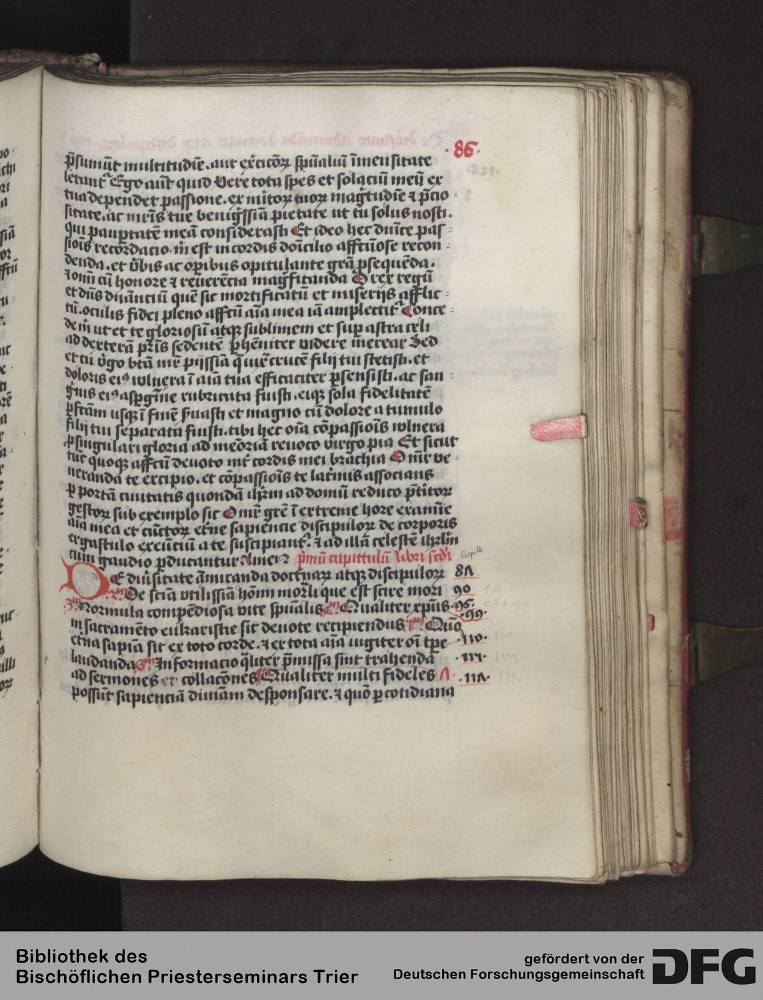 86
p̄sumūt multitudīe. aut exēticoꝝ spūaliū īmensitate
letant² Ego aūt quid Vere tota spes et solaciū meū ex
tua dependet passione. ex mitoꝝ tuoꝝ mag̃tudīe ⁊ p̄cio-
sitate. ac mr̄is tue benigssīa pietate ut tu solus nosti.
qui paup̄tatē meā considerasti Et ideo hec dulce pas-
siōis recordacio. m̄ est in cordis domicilio affectuose recon-
denda. et v̄bis ac opibus opitulante grā p̄sequēda.
⁊ om̄i cū honore ⁊ reuerētia mag̃ficanda O rex regū
et dn̄s dn̄anciū quē sic mortificatū et miserijs afflic-
tū. oculis fidei pleno affectu aīa mea iā amplectit² Conce-
de m̄ ut et te gloriosū atqꝫ sublimem et sup astra celi
ad dexterā pr̄is sedentē p̄henniter videre merear Sed
et tu v̄go btā mr̄ pijssīa q̄ iux crucē filij tui stetisti. et
doloris eiꝰ vulnera ī aīa tua efficaciter p̄sensisti. ac san-
g̃uis eiꝰ asp̄gīne rubricata fuisti. eiqꝫ sola fidelitatē
p̄stitam usqꝫ ī finē s̄uasti et magno cū dolore a tumulo
filij tui separata fuisti. tibi hec oīa cōpassiōis vulnera
ꝓ singulari gloria ad meōriā reuoco virgo pia Et sicut
tūc quoqꝫ affectū deuoto int̄ cordis mei brachia O mr̄ ve-
neranda te excipio. et cōpassiōis te lac̄mis associans
ꝑ portā ciuitatis quondā ihrlm̄ ad domū reduco p̄titoꝝ
gestoꝝ sub exemplo sic O mr̄ grē ī extreme hore examīe
aīa mea et cūctoꝝ et̄ne sapiencie discipuloꝝ de corporis
ergastulo exeūciū a te suscipiant². ⁊ ad illā celestē ihrlm̄
cum gaudio p̄ducantur Amen p̄mū capittulū libri scd̄i
DE diūsitate āmiranda doctrinaꝝ atqꝫ discipuloꝝ 8ʌ
2ᵐ De sciā vtilissīa hōim morīli que est scire mori 90
3ᵐ Normula compēdiosa vite spūalis 4ᵐ Qualiter xp̄us 96
in sacramēto eukaristie sit deuote recipiendus 5ᵐ Quō 99
et̄na sapīa sit ex toto corde. ⁊ ex tota aīa iugiter oī tp̄e 110
laudanda 6ᵐ Informacio q̄liter p̄missa sint trahenda
ad sermones et collacōnes Qualiter multi fideles
possūt sapienciā diuīam desponsare. ⁊ quō p cotidiana
Bibliothek des
Bischöflichen Priesterseminars Trier
gefördert von der
Deutschen Forschungsgemeinschaft
DFG